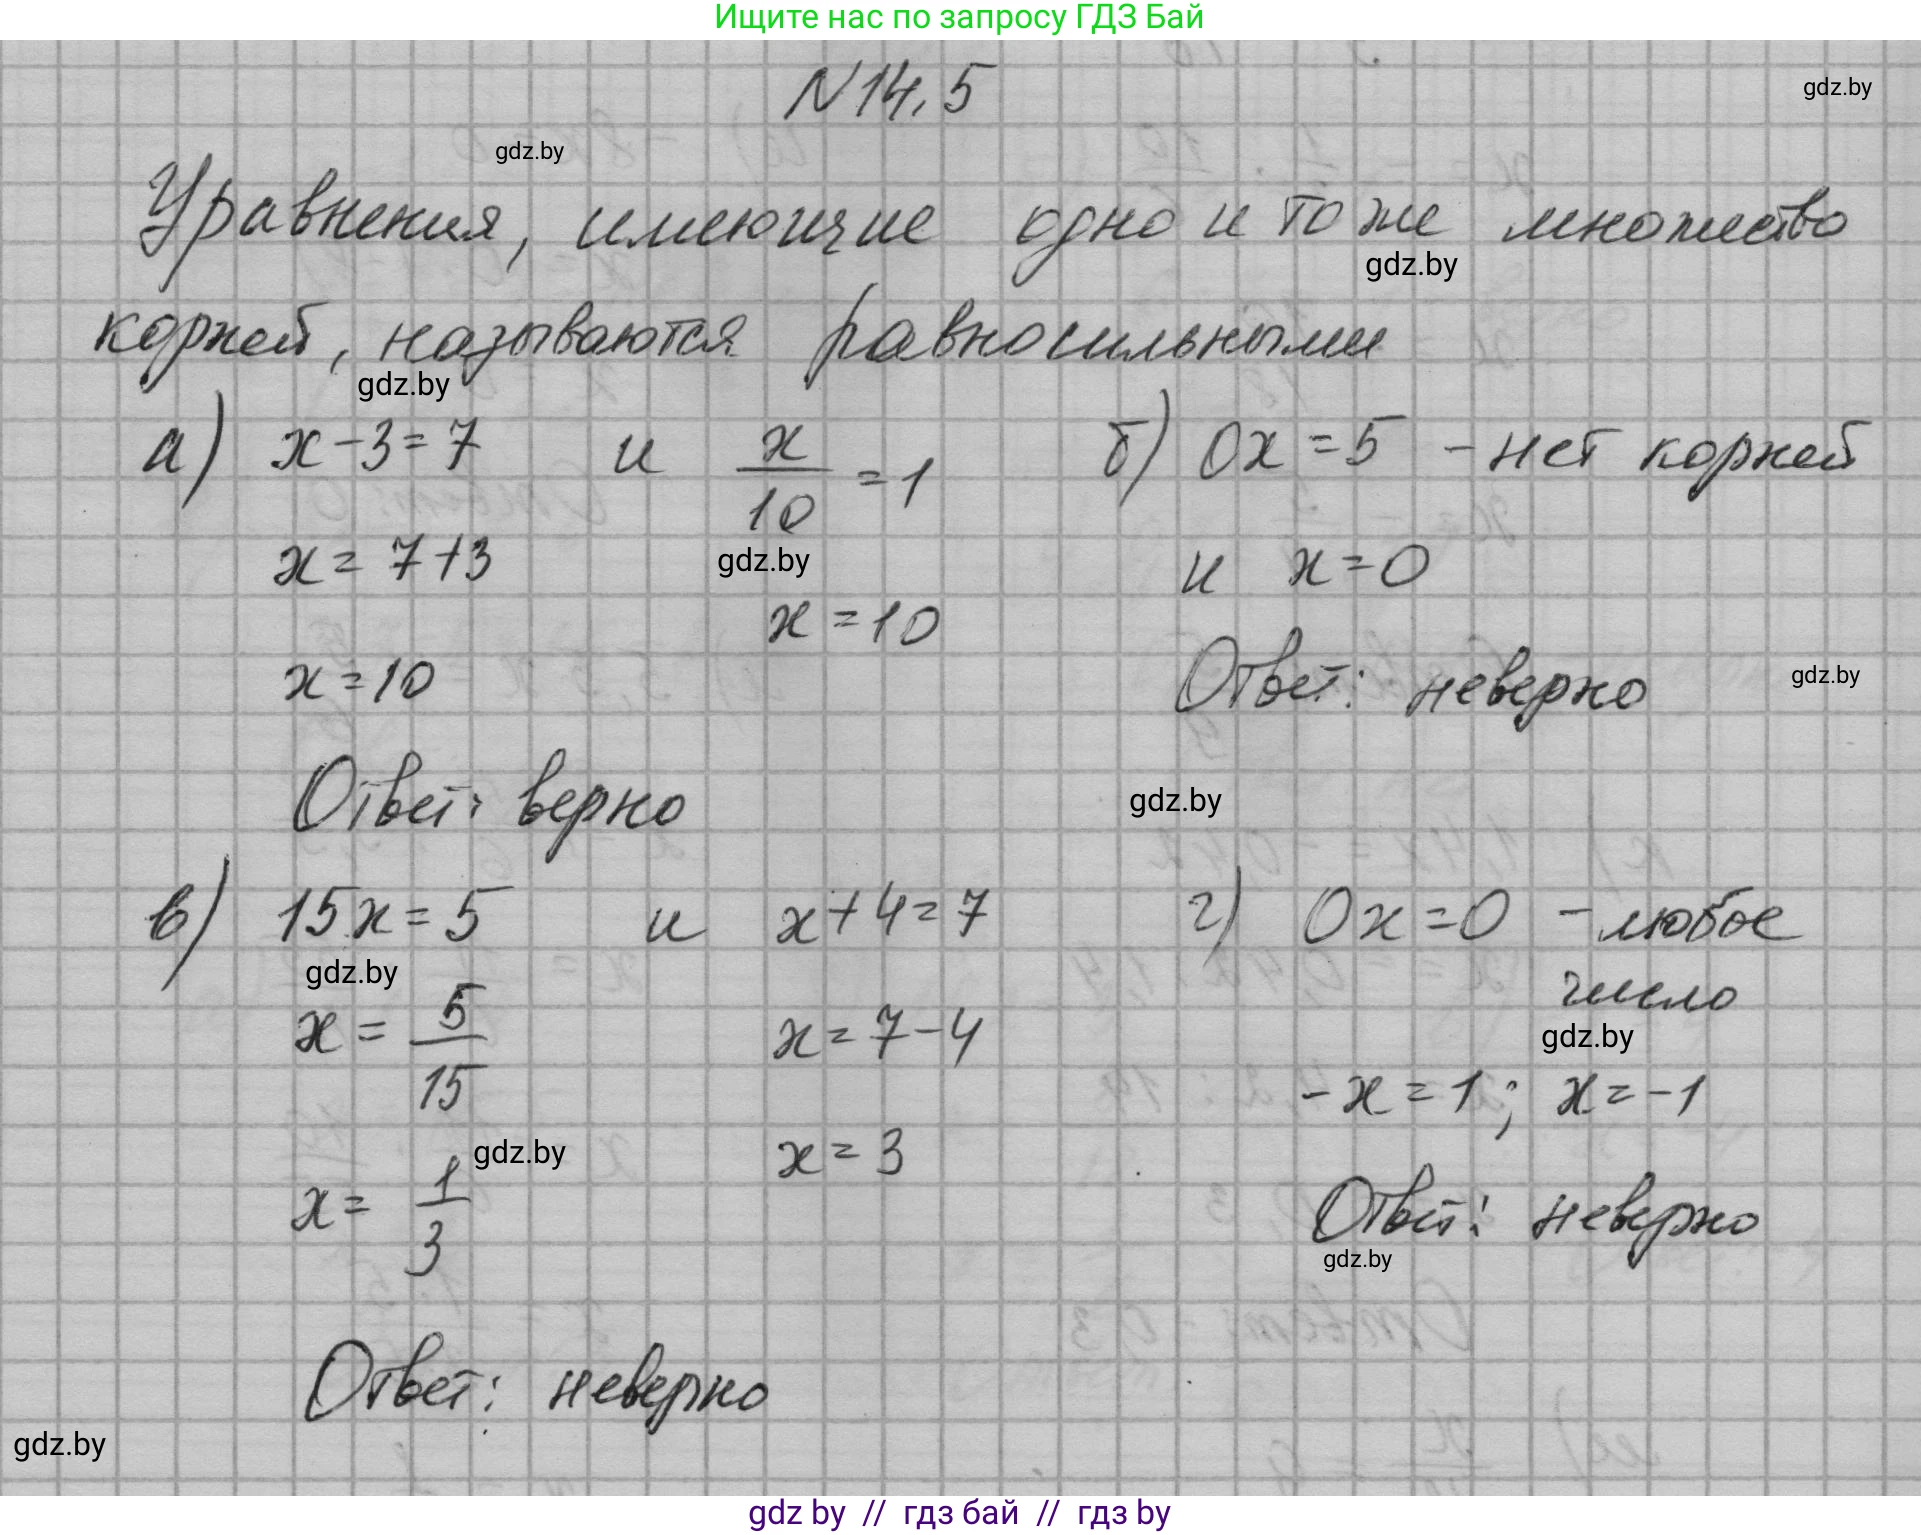 Ищите нас по запросу ГДЗ Бай
N14.5
gdz.by
gdz.by
Уравнения, имеющие одно и то же множество
gdz.by
корней, называются равносильными
gdz.by
а) x-3=7 и x/10=1
x=7+3
gdz.by
x=10
x=10
Ответ: верно
б) 0x=5 - нет корней
и x=0
Ответ: неверно
gdz.by
gdz.by
в) 15x=5 и x+4=7
gdz.by
x=5/15 x=7-4
gdz.by
x=1/3 x=3
Ответ: неверно
г) 0x=0 - любое
число
gdz.by
-x=1; x=-1
Ответ: неверно
gdz.by
gdz.by
gdz by // гдз бай // гдз by